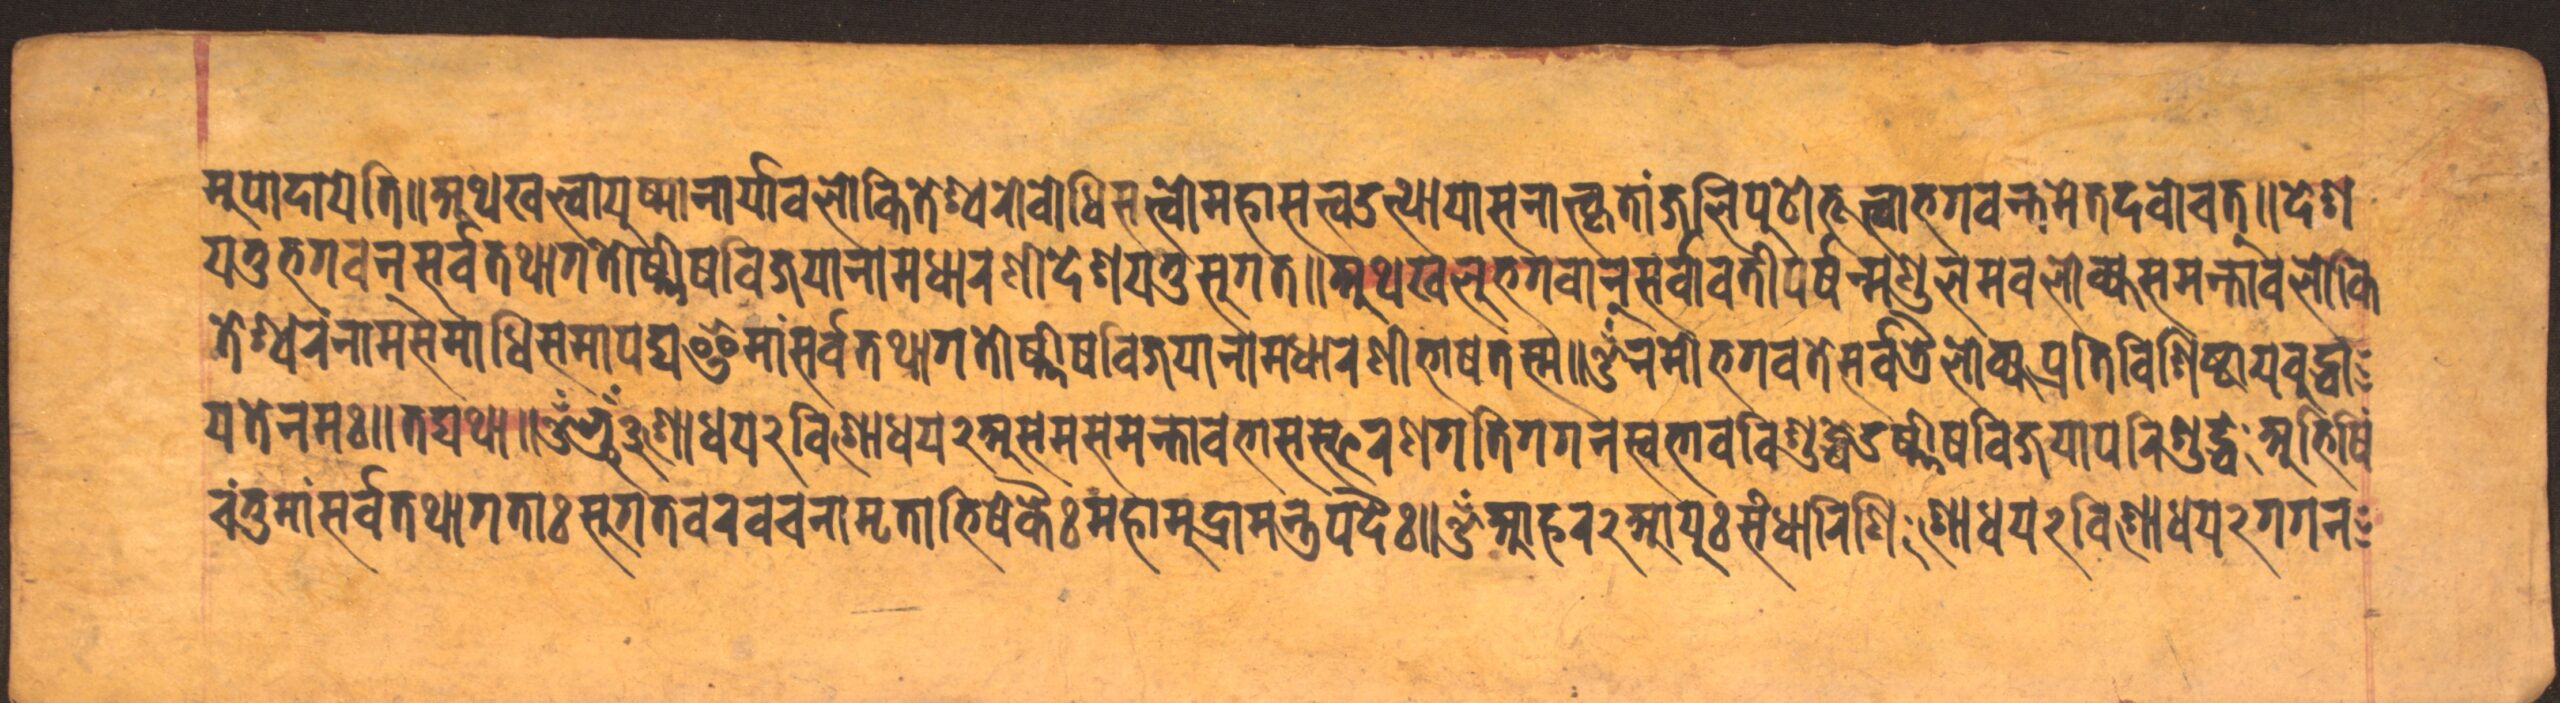 मुपादायेति॥अथखल्वायुष्मानार्यावलोकितेश्वरोवोधिसत्त्वोमहासत्त्वउत्थायासनात्कृतांजलिपुठोभूत्वाभगवन्तमेतदवोचत्॥देश
यतुभगवन्सर्वतथागतोष्णीषविजयानामधारणीदेशयतुसुगत॥अथखलुभगवान्सर्वावतीपर्षन्मण्डलमवलोक्यसमन्तावलोकि
तेश्वरंनामसमाधिसमापद्यइमांसर्वतथागतोष्णीषविजयानामधारणीभाषतस्म॥ॐनमोभगवतेसर्वत्रैलोक्यप्रतिविशिष्टायवुद्धा
यतेनमः॥तद्यथा॥ॐभ्रुं३शोधय२विशोधय२असमसमन्तावभासस्फरणगतिगगनस्वभावविशुद्धेउष्णीषविजयापरिशुद्धेअभिषिं
चंतुमांसर्वतथागताःसुगतवरवचनामृताभिषेकैःमहामुद्रामन्त्रपदैः॥ॐआहर२आयुःसंधारिणिशोधय२विशोधय२गगन